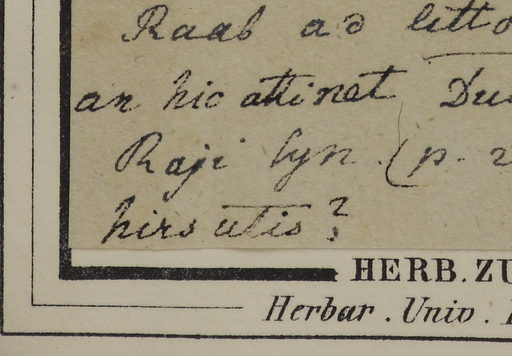 Raab ad litto
an hic attinet Du
Raji Syn. (p. 2
hirsutis?
HERB. ZU
Herbar. Univ.